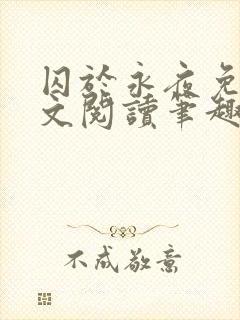 囚於永夜免
文閱讀筆趣
不成敬意